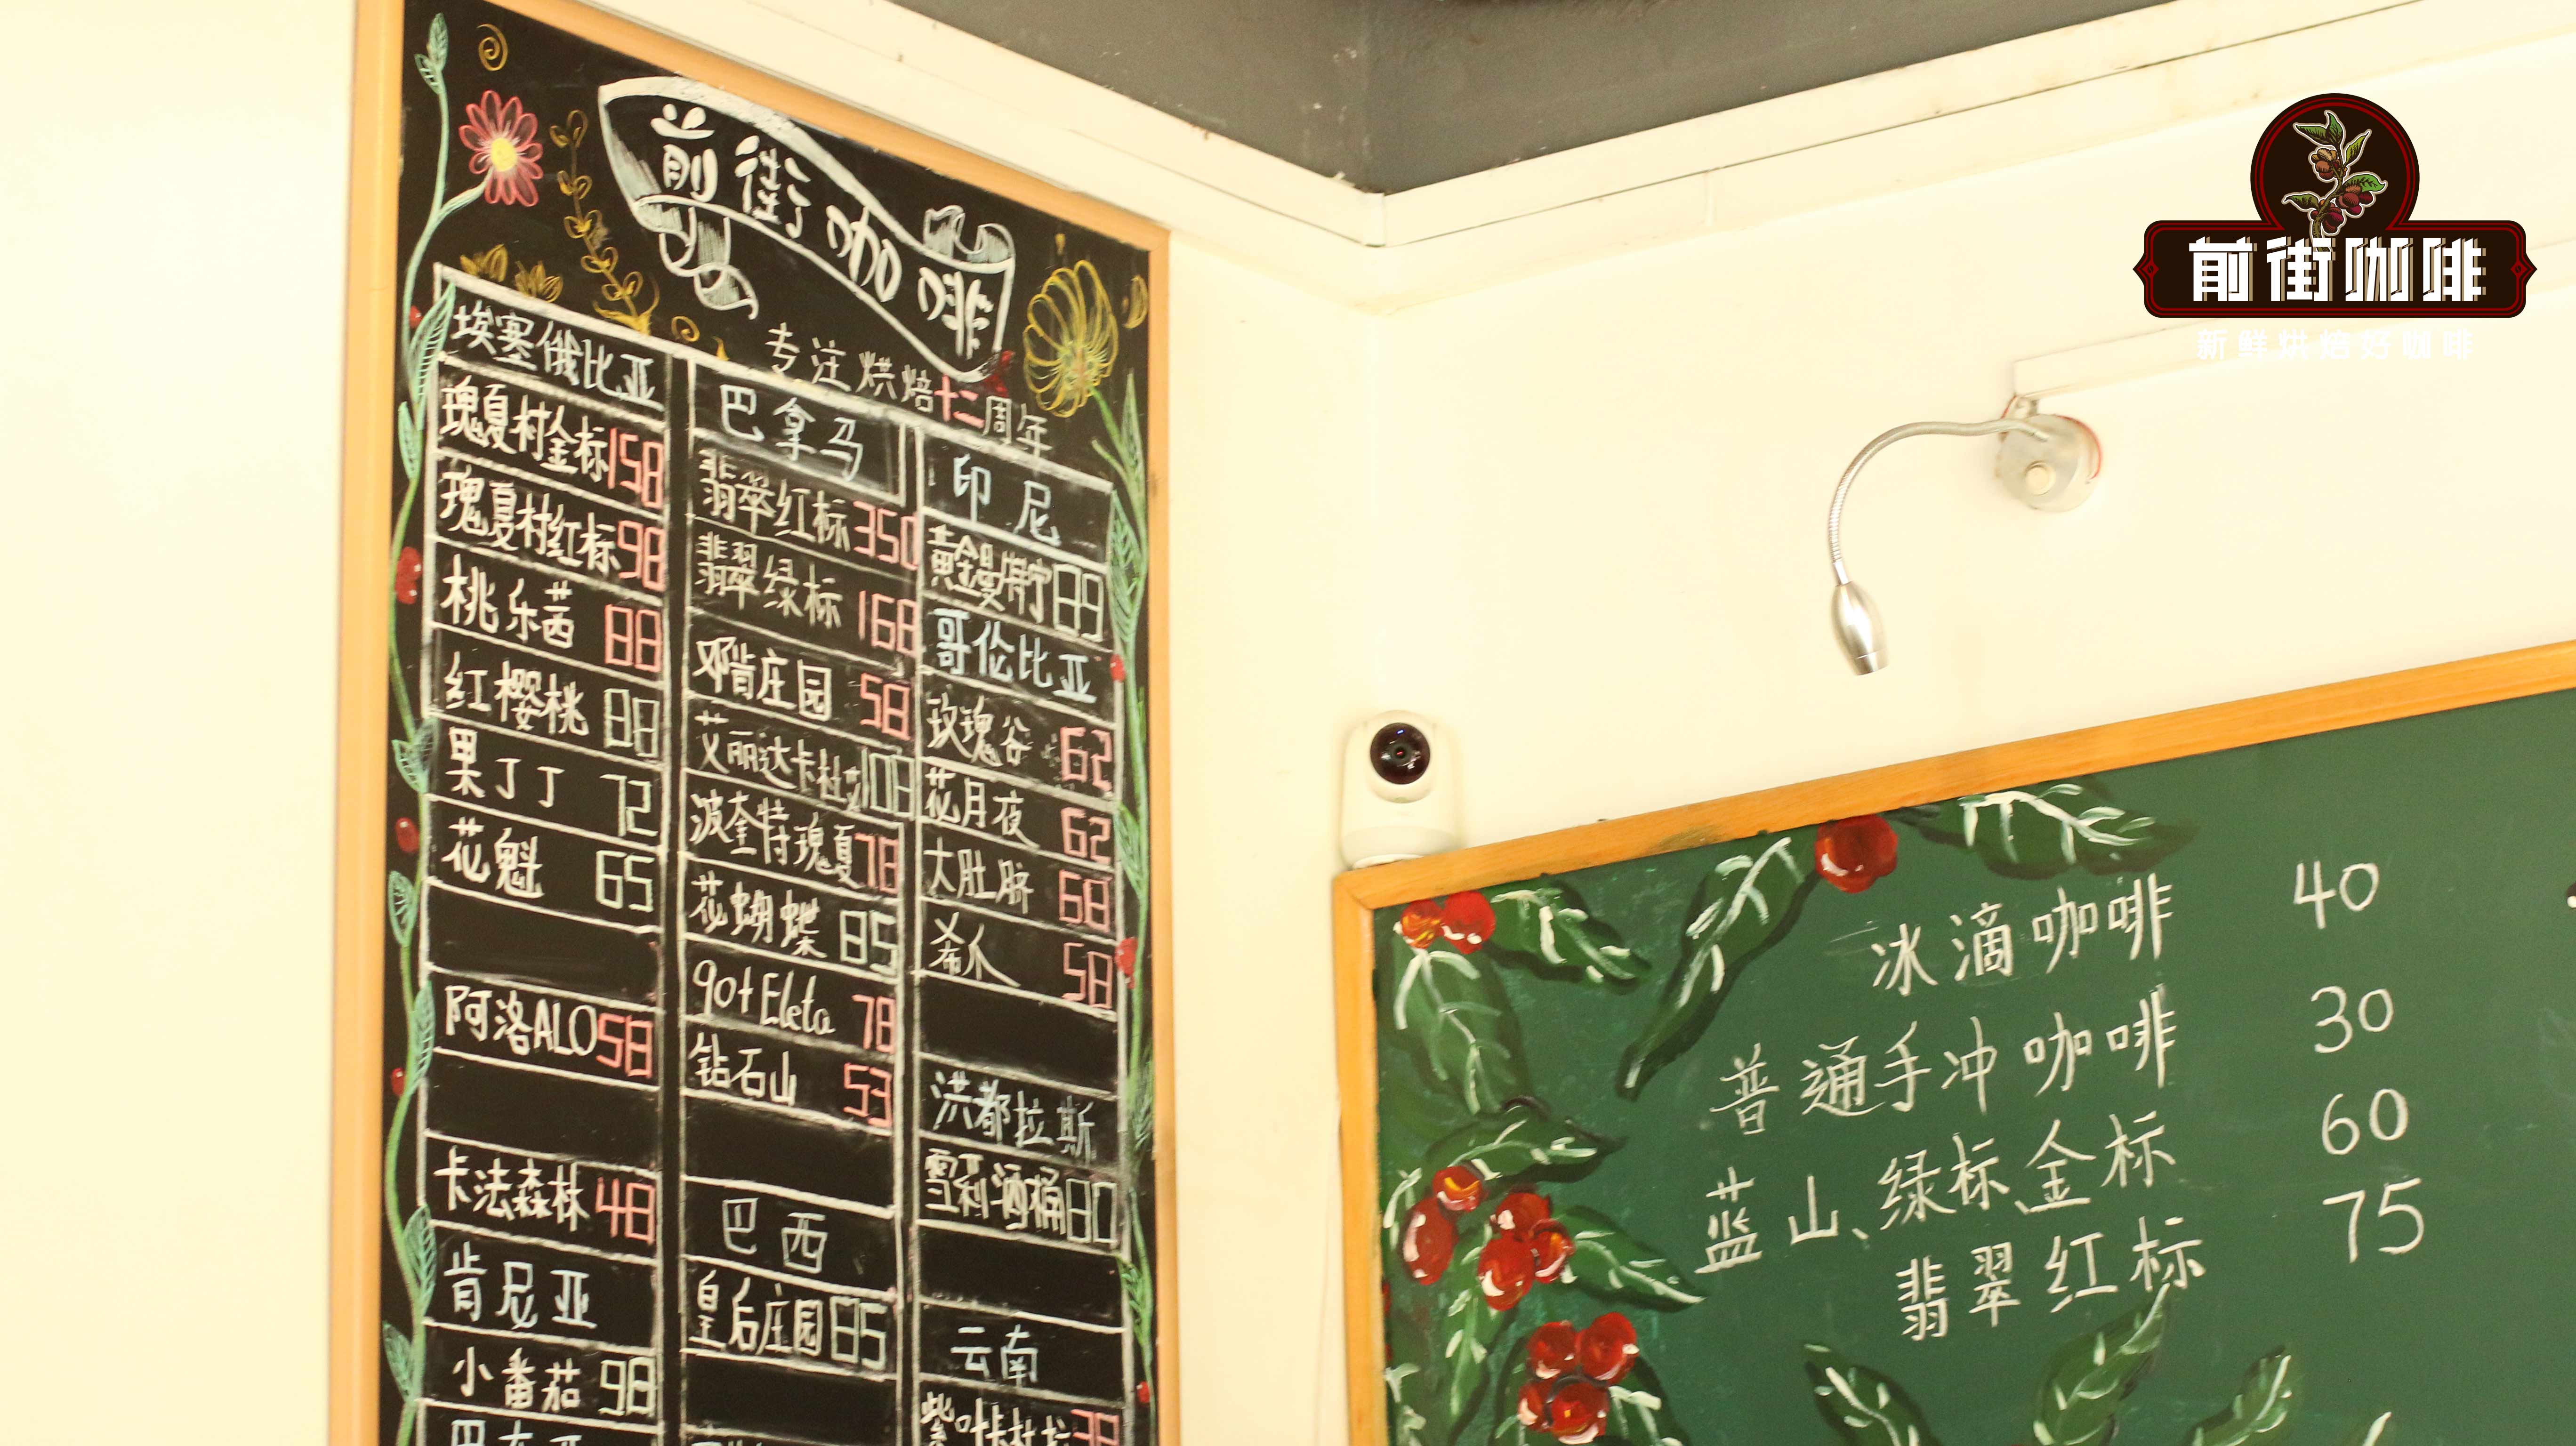 前街咖啡
专注烘焙十二周年
埃塞俄比亚
瑰夏村金标158
瑰夏村红标98
桃乐茜 88
红樱桃 88
果丁丁 72
花魁 65
阿洛ALO58
卡法森林48
肯尼亚
小番茄98
巴拿马
翡翠红标350
翡翠绿标168
邓肯庄园 58
艾丽达卡杜108
波奎特瑰夏78
花蝴蝶85
90+Eleta 78
钻石山 53
巴西
皇后庄园85
印尼
黄金曼特宁89
哥伦比亚
玫瑰谷 62
花月夜 62
大肚脐 68
希爪 58
洪都拉斯
雪莉酒桶80
云南
前街咖啡
新鲜烘焙好咖啡
冰滴咖啡 40
普通手冲咖啡 30
蓝山、绿标、金标 60
翡翠红标 75